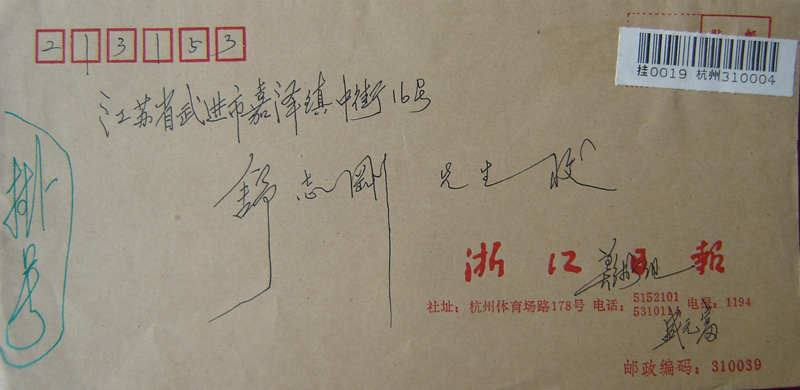 213153
贴 邮
挂0019 杭州310004
江苏省武进市嘉泽镇中街16号
舒志刚 先生 收
挂号
浙江日報
美术组
社址：杭州体育场路178号 电话：5152101 5310114 电报：1194
盛元富
邮政编码：310039